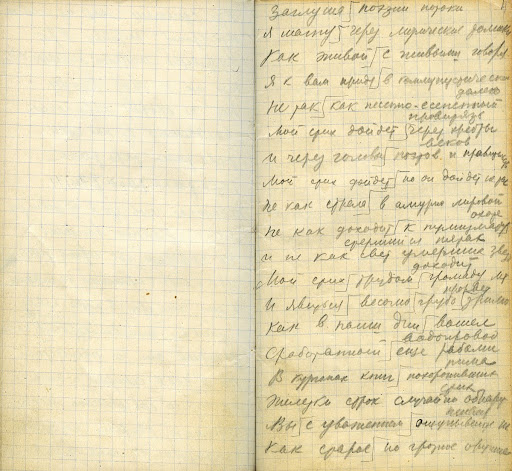 Заглуша поэзии потоки
я шагну через лирические томики
Как живой с живыми говоря
Я к вам приду в коммунистическое
далеко
Не так как песенно-есененный
провитязь
Мой стих дойдет через хребты
веков
и через головы поэтов и правительств
Мой стих дойдет но он дойдет не так
Не как стрела в амурно лировой
охоте
Не как доходит к нумизмату
стершийся пятак
и не как свет умерших звезд
доходит
Мой стих трудом громаду лет
прорвет
И явится весомо грубо зримо
Как в наши дни вошел
водопровод
Сработанный еще рабами
Рима
В курганах книг похоронивших
стих
Железки строк случайно обнару
живая
Вы с уважением ощупывайте их
Как старое но грозное оружие